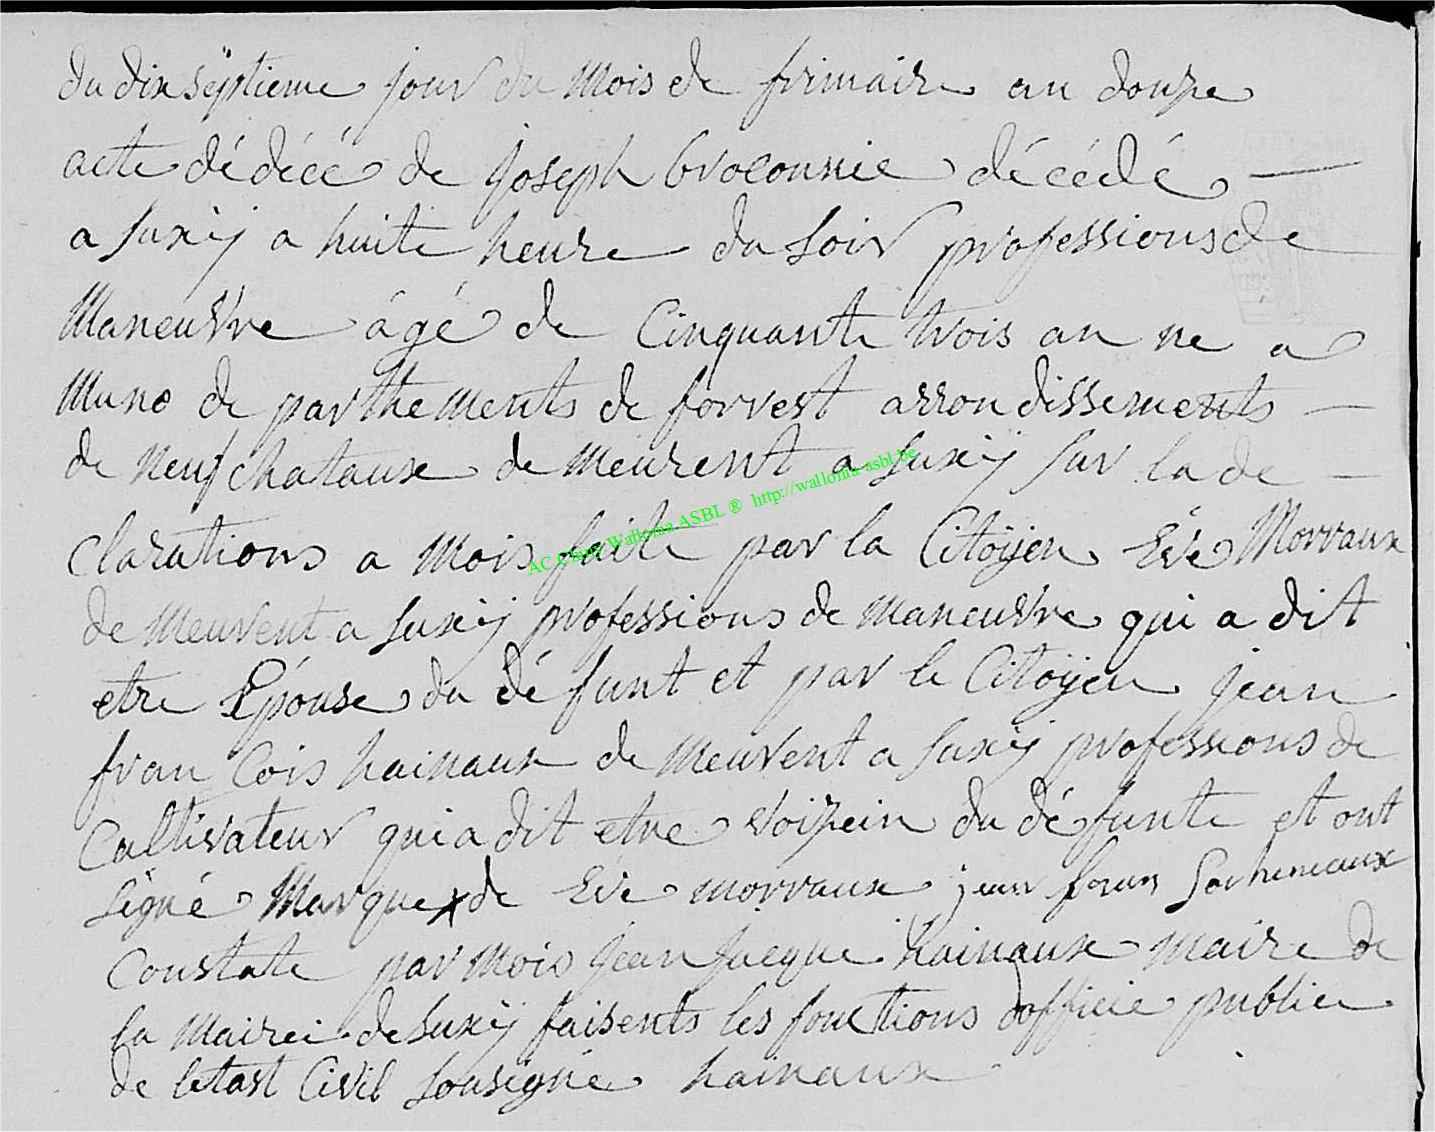 du dix septieme jour du mois de frimaire an douze
acte dédécé de joseph brolonnie décédé —
a Suxÿ a huite heure du soir professions de
maneuvre âgé de Cinquante trois an ne a
muno de parthements de forrest arrondissements —
de neufchataux de meurent a Suxÿ sur la de —
clarations a mois faite par la Citöyen Eve Morvaux
de meurent a Suxÿ professions de maneuvre qui a dit
etre Epouse du défunt et par le Citöyen jean
fran Cois hainaux de meurent a Suxÿ professions de
Cultivateur qui a dit etre voizein du défunte et ont
signé Marque x de Eve morvaux jean
Constate par mois jean jacque hainaux maire de
la mairei de Suxÿ faisents les fonctions dofficie publice
de letast Civil sousigné hainaux
AC Wallonia ASBL ® http://wallonia-asbl.be